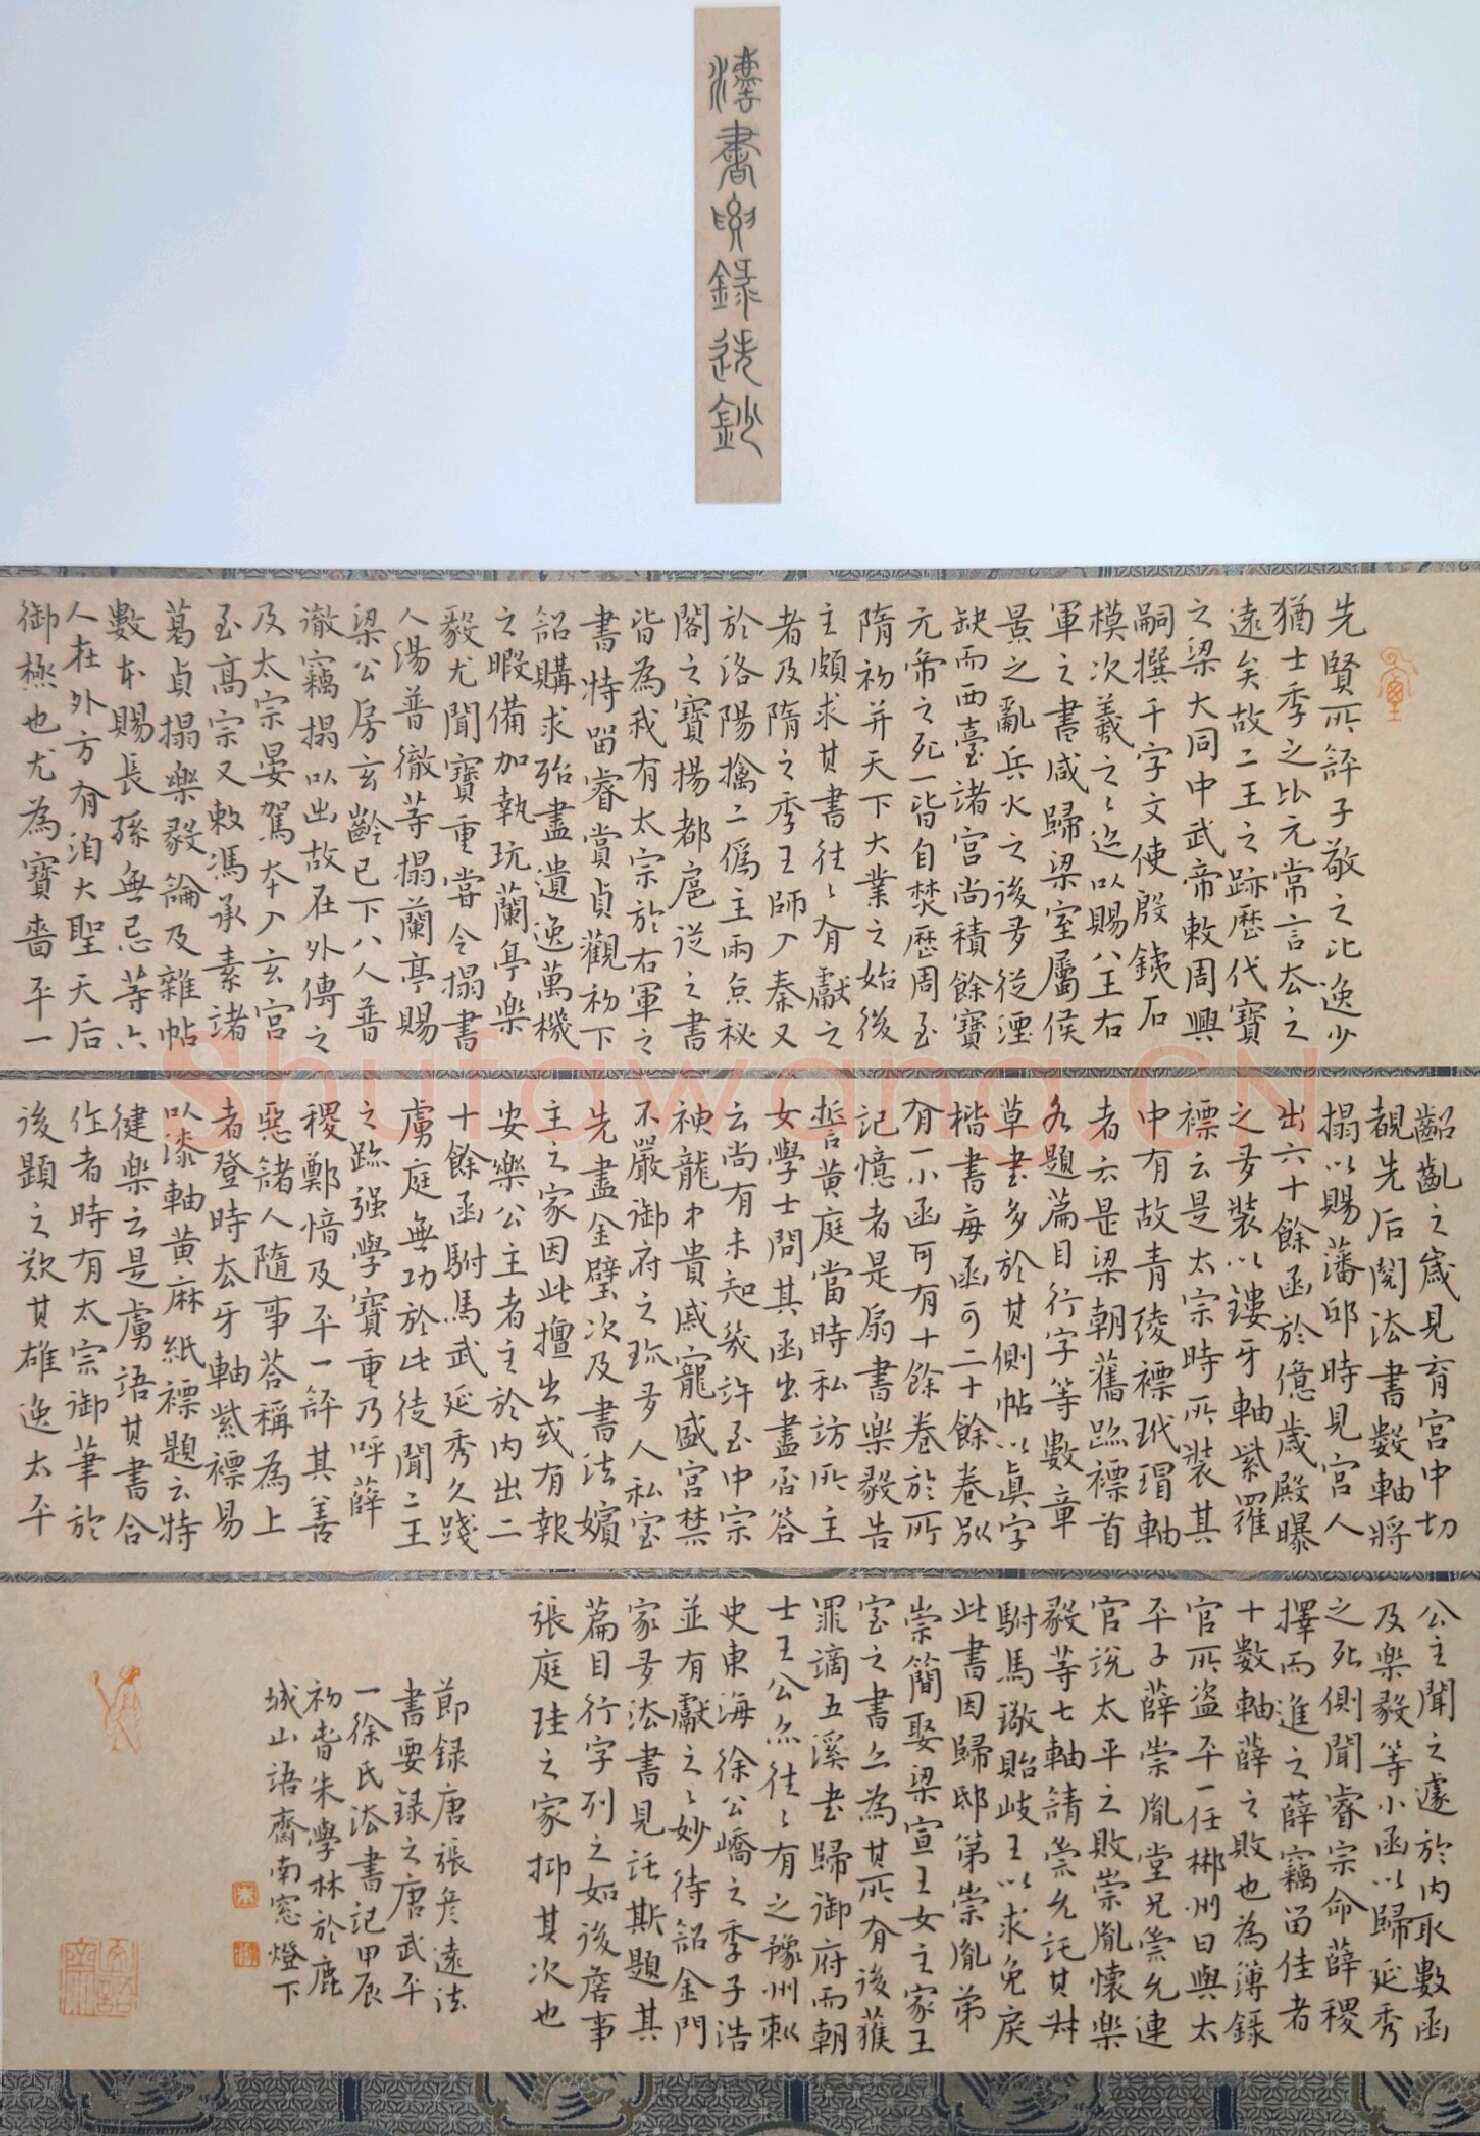 灋書要錄选鈔
先賢所評子敬之比逸少
猶士季之比元常言去之
遠矣故二王之跡歷代寶
之梁大同中武帝敕周興
嗣撰千字文使殷鐵石
模次羲之〻迹以賜八王右
軍之書咸歸梁室屬侯
景之亂兵火之後多從湮
缺而西臺諸宮尚積餘寶
元帝之死一皆自焚歷周至
隋初并天下大業之始後
主頗求其書往〻有獻之
者及隋之季王師入秦又
於洛陽擒二僞主兩京秘
閣之寶揚都扈從之書
皆為我有太宗於右軍之
書特留睿賞貞觀初下
詔購求殆盡遺逸萬機
之暇備加執玩蘭亭樂
毅尤聞寶重嘗令搨書
人湯普徹等搨蘭亭賜
梁公房玄齡已下八人普
徹竊搨以出故在外傳之
及太宗晏駕本入玄宮
至高宗又敕馮承素諸
葛貞搨樂毅論及雜帖
數本賜長孫無忌等六
人在外方有洎大聖天后
御極也尤為寶嗇平一
齠齓之歲見育宮中切
覩先后閱法書數軸將
搨以賜藩邸時見宮人
出六十餘函於億歲殿曝
之多裝以鏤牙軸紫羅
褾云是太宗時所裝其
中有故青綾褾玳瑁軸
者云是梁朝舊跡褾首
各題篇目行字等數章
草書多於其側帖以真字
楷書每函可二十餘卷別
有一小函可有十餘卷於所
記憶者是扇書樂毅告
誓黃庭當時私訪所主
女學士問其函出盡否答
云尚有未知幾許至中宗
神龍中貴戚寵盛宮禁
不嚴御府之珍多人私室
先盡金璧次及書法嬪
主之家因此擅出或有報
安樂公主者主於內出二
十餘函駙馬武延秀久踐
虜庭無功於此徒聞二王
之跡强學寶重乃呼薛
稷鄭愔及平一評其善
惡諸人隨事答稱為上
者登時去牙軸紫褾易
以漆軸黃麻紙褾題云特
健樂云是虜語其書合
作者時有太宗御筆於
後題之歎其雄逸太平
公主聞之遽於內取數函
及樂毅等小函以歸延秀
之死側聞睿宗命薛稷
擇而進之薛竊留佳者
十數軸薛之敗也為簿錄
官所盜平一任郴州日與太
平子薛崇胤堂兄崇允連
官說太平之敗崇胤懷樂
毅等七軸請崇允託其叔
駙馬璥貽岐王以求免戾
此書因歸邸第崇胤弟
崇簡娶梁宣王女主家王
室之書亦為其所有後獲
罪謫五溪書歸御府而朝
士王公亦往〻有之豫州刺
史東海徐公嶠之季子浩
並有獻之〻妙待詔金門
家多法書見託斯題其
篇目行字列之如後詹事
張庭珪之家抑其次也
節録唐張彥遠法
書要録之唐武平
一徐氏法書記甲辰
初春朱學林於鹿
城山語齋南窓燈下
Shufawang.CN